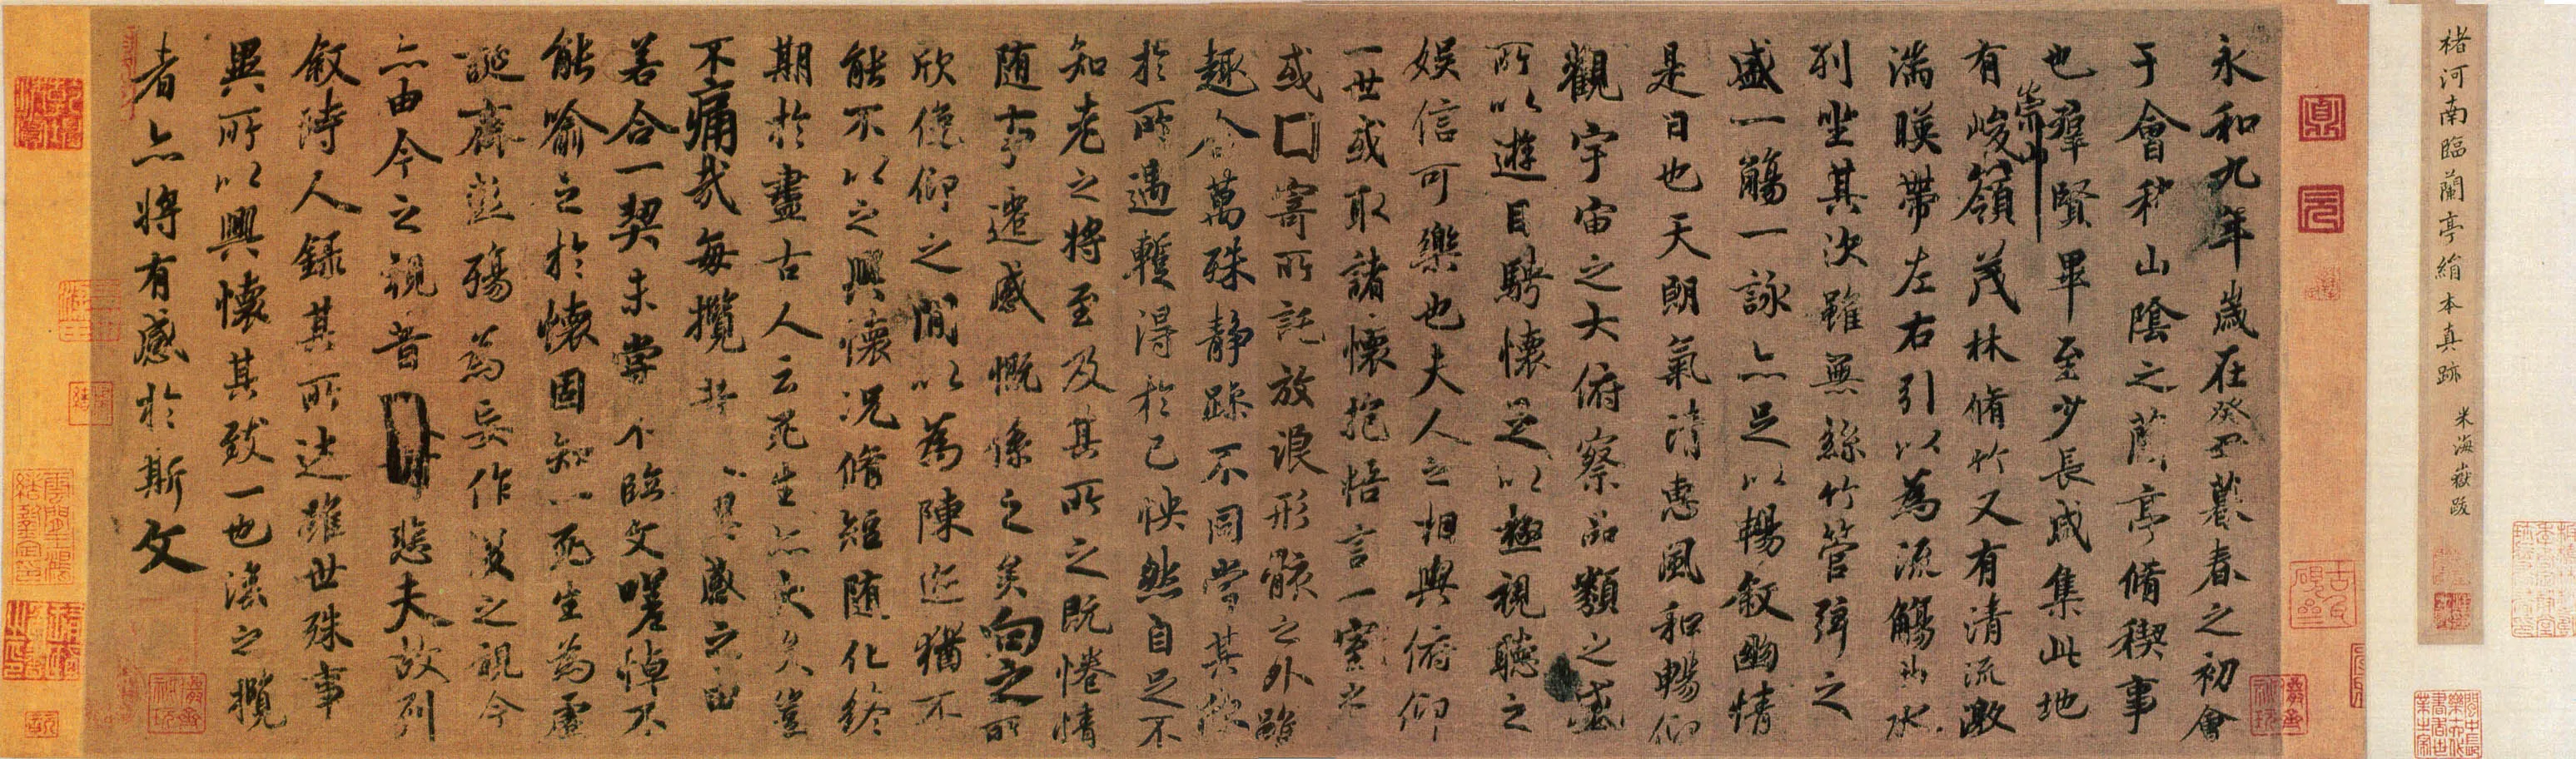 褚河南臨蘭亭絹本真跡 米海嶽跋
永和九年歲在癸丑暮春之初會
于會稽山陰之蘭亭脩稧事
也羣賢畢至少長咸集此地
有崇山峻嶺茂林脩竹又有清流激
湍暎帶左右引以為流觴曲水
列坐其次雖無絲竹管弦之
盛一觴一詠亦足以暢敘幽情
是日也天朗氣清惠風和暢仰
觀宇宙之大俯察品類之盛
所以遊目騁懷足以極視聽之
娛信可樂也夫人之相與俯仰
一世或取諸懷抱悟言一室之
或囗寄所託放浪形骸之外雖
趣舍萬殊靜躁不同當其欣
於所遇蹔得於己怏然自足不
知老之將至及其所之既惓情
随事遷感慨係之矣向之所
欣俛仰之閒以為陳迹猶不
能不以之興懷況脩短随化終
期於盡古人云死生亦大矣豈
不痛哉每攬昔興感之由
若合一契未嘗不臨文嗟悼不
能喻之於懷固知一死生為虛
誕齊彭殤為妄作後之視今
亦由今之視昔悲夫故列
敘時人錄其所述雖世殊事
異所以興懷其致一也後之攬
者亦將有感於斯文